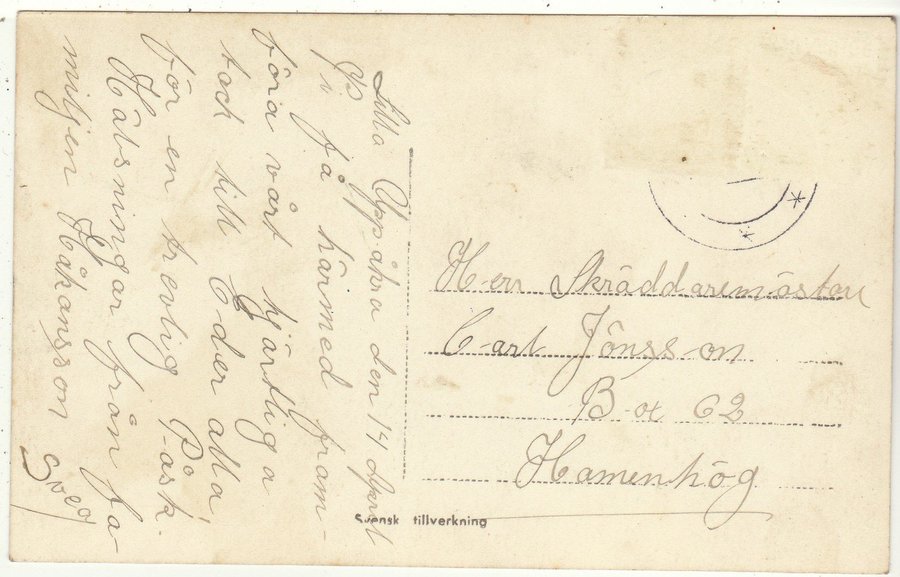 Lilla Uppåkra den 14 April
Vi få härmed fram-
föra vårt hjärtliga
tack till Eder alla
för en trevlig Påsk.
Hälsningar från fa-
miljen Håkansson
Svea
Herr Skräddaremästare
Carl Jönsson
Box 62
Hamenhög
Svensk tillverkning